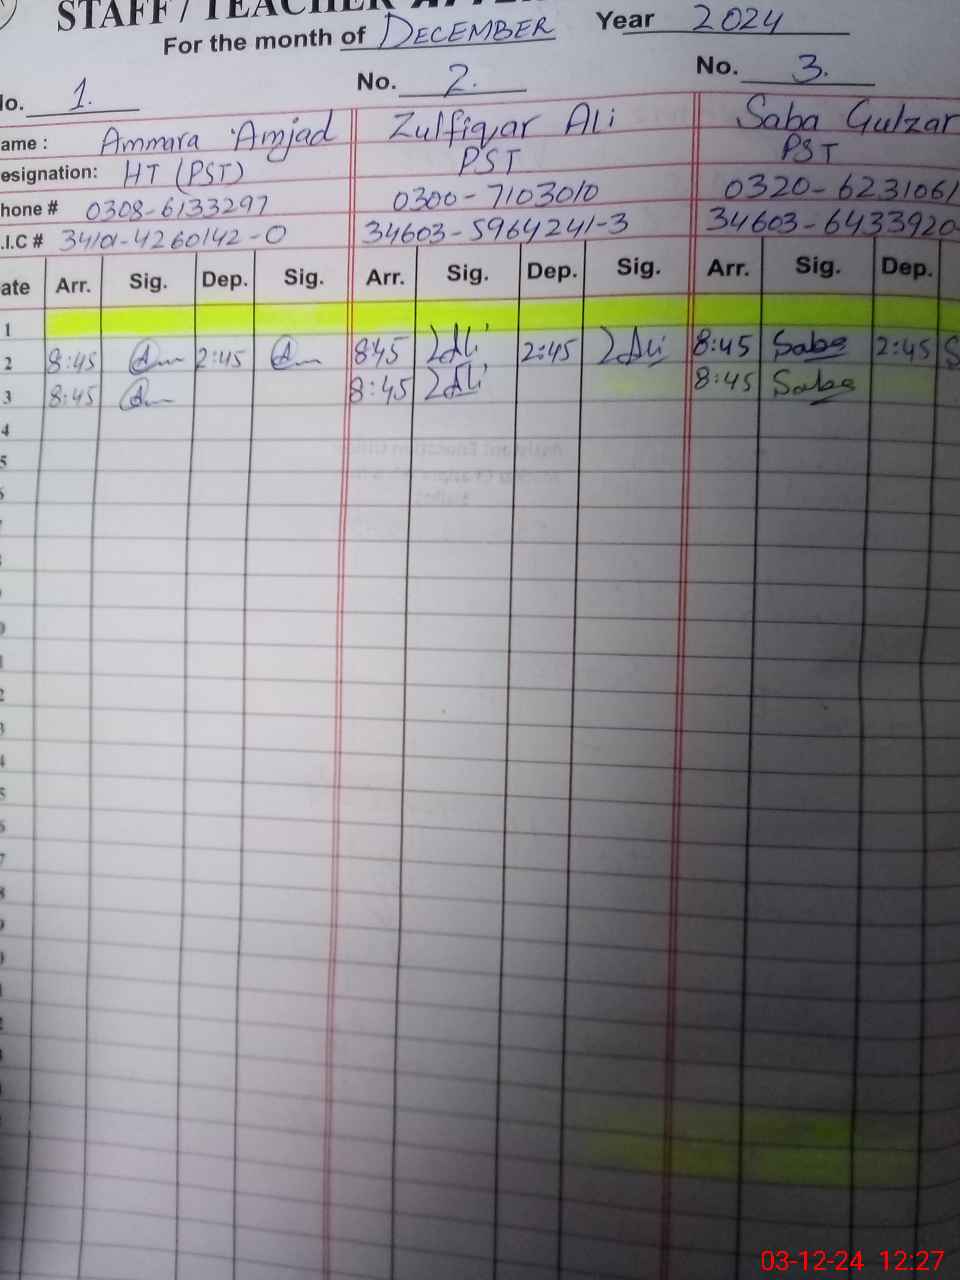 STAFF / TEACHER ATTE
For the month of DECEMBER Year 2024
No. 1. No. 2. No. 3.
ame : Ammara Amjad Zulfiqar Ali Saba Gulzar
esignation: HT (PST) PST PST
hone # 0308-6133297 0300-7103010 0320-6231061
.I.C # 34101-4260142-0 34603-5964241-3 34603-6433920-
ate Arr. Sig. Dep. Sig. Arr. Sig. Dep. Sig. Arr. Sig. Dep.
1
2 8:45 2:45 845 ZAli 2:45 ZAli 8:45 Saba 2:45 S
3 8:45 8:45 ZAli 8:45 Saba
4
5
03-12-24 12:27